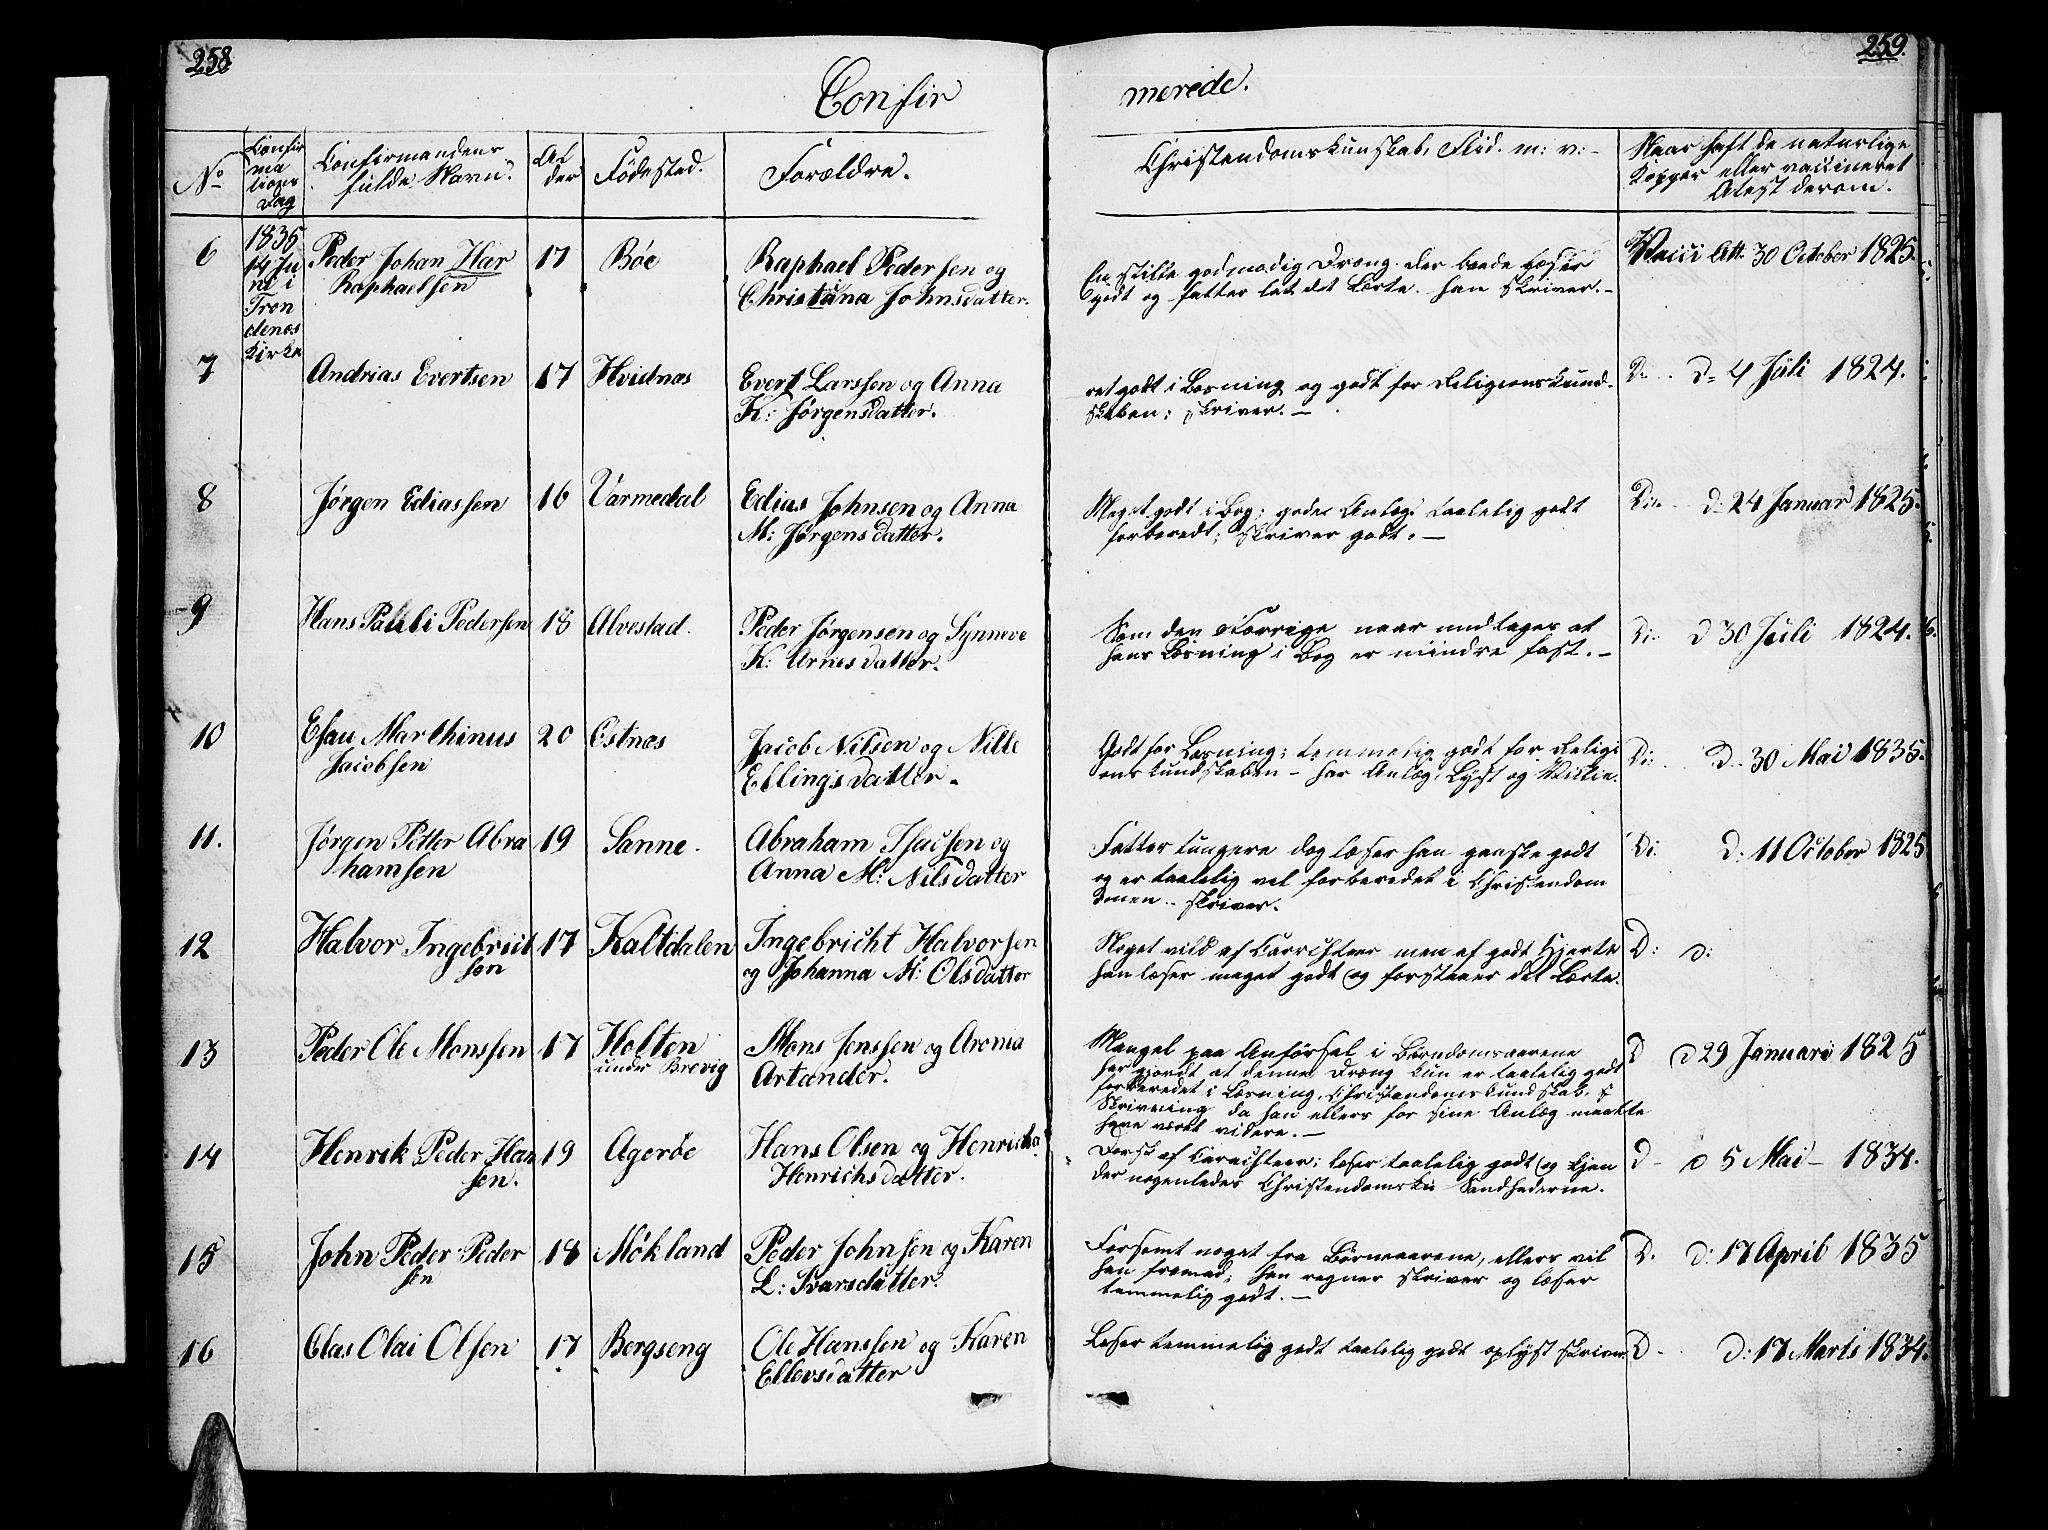 258
259.
Confir
merede.
No
Confir
ma
tions
Dag
Confirmandens
fulde Navn.
Al
der
Fødested.
Forældre.
Christendomskunskab, Flid. m: v:
Naar haft de naturlige
Kopper eller vaccineret
Atest derom.
6
1835
14 Ju
ni i
Tron
denæs
Kirke
Peder Johan Har
Raphaelsen
17
Bøe
Raphael Pedersen og
Christiana Johnsdatter.
En stille godmodig Dreng der baade læser
godt og fatter let det Lærte. han skriver.-
Vacci Att. 30 October 1825.
7
Andrias Evertsen
17
Hvidnæs
Evert Larssen og Anna
K: Jørgensdatter.
ret godt i Læsning og godt for Religionskund-
skaben; skriver. -
D: D= 4 Juli 1824.
8
Jørgen Ediassen
16
Varmedal
Edias Johnsen og Anna
M: Jørgensdatter.
Meget godt i Bog; gode Anlæg taalelig godt
forberedt; skriver godt. -
Di: d: 24 Januar 1825.
9
Hans Pauli Pedersen
18
Alvestad.
Peder Jørgensen og Synneve
K: Arnesdatter.
Som den Forrige naar undtages at
hans Læsning i Bog er mindre fast. -
Di: d 30 Juli 1824.
10
Esau Marthinus
Jacobsen
20
Østnæs
Jacob Nilsen og Nille
Ellingsdatter.
Godt for Læsning; temmelig godt for Religi
onskundskaben - har Anlæg, Lyst og Villie.
Di: D. 30 Mai 1835.
11.
Jørgen Petter Abra
hamsen
19
Sanne.
Abraham Isacsen og
Anna M: Nilsdatter
Fatter tungere dog læser han ganske godt
og er taalelig vel forberedet i Christendom
dmen - skriver.
Di: D: 11 October 1825
12
Halvor Ingebricht
sen
17
Kaltdalen
Ingebricht Halvorsen
og Johanna M: Olsdatter
Noget vild af Carachteer men af godt Hjerte
han læser meget godt og forstaaer det Lærte.
D: d:
13
Peder Ole Monssen
17
Holten
under Brevig
Mons Jenssen og Aronia
Artander.
Mangel paa Anførsel i Barndomsaarene
har gjordt at denne Dreng kun er taalelig godt
forberedet i Læsning, Christendomskundskab, &
Skrivning da han ellers for sine Anlæg maatte
have været videre. -
D d 29 Januari 1825
14
Henrik Peder Han
sen.
19
Agerøe
Hans Olsen og Henricha
Henrichsdatter.
Dorsk af Carachteer; læser taalelig godt og kjen
der nogenledes Christendomskn Sandhederne.
D- d 5 Mai - 1834.
15
John Peder Peder
sen
18
Møkland
Peder Johnsen og Karen
L: Ivarsdatter.
Forsømt noget fra Børneaarene, ellers vil
han fremad; han regner skriver og læser
temmelig godt. -
D. d: 17 April 1835
16
Olas Olai Olsen
17
Bergseng
Ole Hanssen og Karen
Ellevsdatter
Læser temmelig godt taalelig godt oplyst skriver
D- D: 17 Marts 1834.